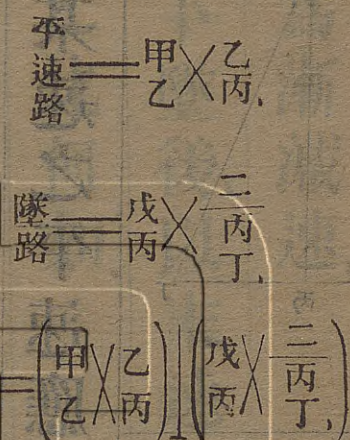 平速路＝甲乙×乙丙、
墜路＝戊丙×二/丙丁、
＝(甲乙×乙丙)⊥(戊丙×二/丙丁、)